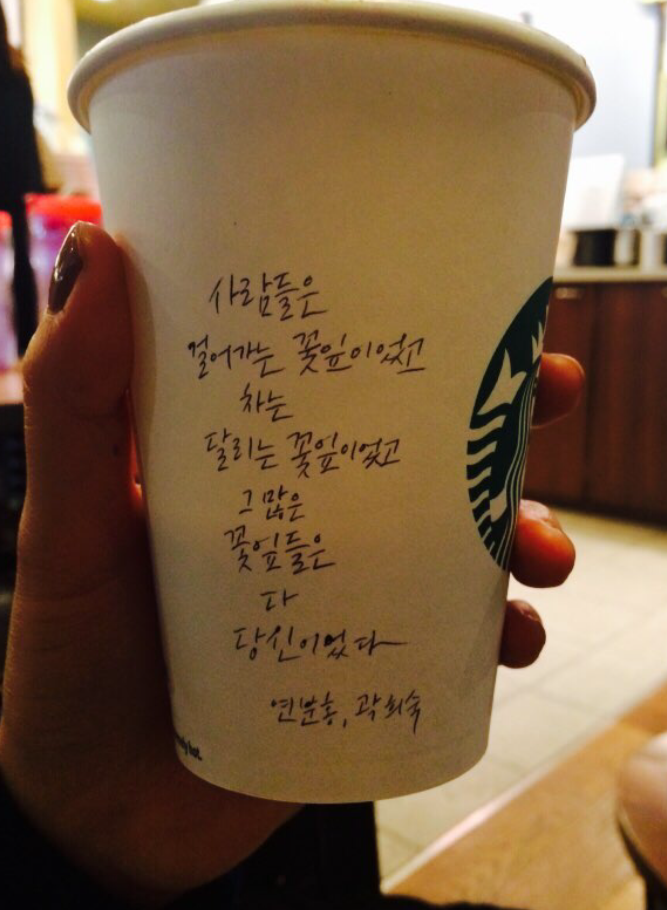 사람들은
걸어가는 꽃잎이었고
차는
달리는 꽃잎이었고
그 많은
꽃잎들은
다
당신이었다
연분홍, 곽희숙